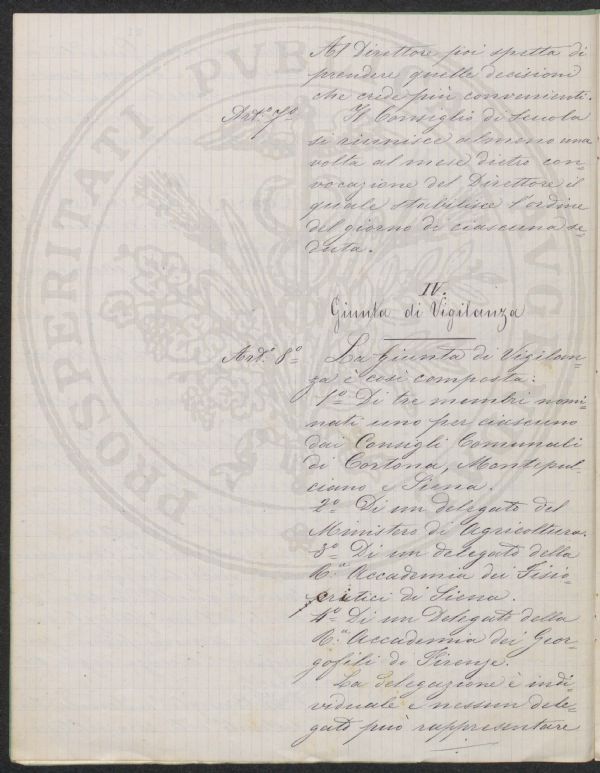 Al Direttore poi spetta di
prendere quelle decisioni
che crede più convenienti.
Art.° 7° Il Consiglio di Scuola
si riunisce almeno una
volta al mese dietro con=
vocazione del Direttore il
quale stabilisce l'ordine
del giorno di ciascuna se=
duta.
IV.
Giunta di Vigilanza
Art.° 8° La Giunta di Vigilan=
za è così composta:
1° Di tre membri nomi=
nati uno per ciascuno
dai Consigli Comunali
di Cortona, Montepul=
ciano e Siena.
2° Di un delegato del
Ministero di Agricoltura.
3° Di un delegato della
R.ª Accademia dei Fisio=
critici di Siena.
4° Di un Delegato della
R.ª Accademia dei Geor=
gofili di Firenze.
La delegazione è indi=
viduale e nessun dele=
gato può rappresentare
PROSPERITATI PUBLICAE